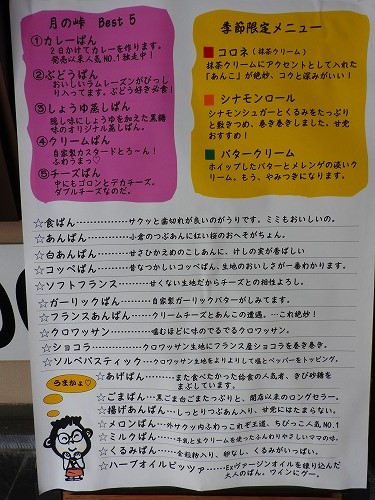 月の峠 Best 5
①カレーぱん
2日かけてカレーを作ります。
発売以来人気NO.1独走中!
②ぶどうぱん
おいしいラムレーズンがびっし
り入ってます。ぶどう好き必食!
③しょうゆ蒸しぱん
隠し味にしょうゆを加えた黒糖
味のオリジナル蒸しぱん。
④クリームぱん
自家製カスタードとろ〜ん!
ふわうまっ♡
⑤チーズぱん
中にもゴロンとデカチーズ。
ダブルチーズなのだ。
季節限定メニュー
コロネ(抹茶クリーム)
抹茶クリームにアクセントとして入れた
「あんこ」が絶妙、コクと深みがいい!
シナモンロール
シナモンシュガーとくるみをたっぷり
と敷きつめ、巻き巻きしました。甘党
おすすめ!
バタークリーム
ホイップしたバターとメレンゲの淡いク
リーム。もう、やみつきになります。
☆食ぱん……………サクッと歯切れが良いのがうりです。ミミもおいしいの。
☆あんぱん…………小倉のつぶあんに紅い桜のおへそがちょん。
☆白あんぱん………甘さひかえめのこしあんに、けしの実が香ばしい
☆コッペぱん………昔なつかしいコッペぱん、生地のおいしさが一番わかります。
☆ソフトフランス………甘くない生地だからチーズとの相性よろし。
☆ガーリックぱん………自家製ガーリックバターがしみてます。
☆フランスあんぱん………クリームチーズとあんこの遭遇。…これ絶妙!
☆クロワッサン…………噛むほどに味のでるでるクロワッサン。
☆ショコラ……………クロワッサン生地にフランス産ショコラを巻き巻き。
☆ソルペパスティック…クロワッサン生地をよりよりして塩とペッパーをトッピング。
うまかぁ♡
☆あげぱん……また食べたかった給食の人気者、きび砂糖を
まぶしています。
☆ごまぱん……黒ごま白ごまたっぷりと、開店以来のロングセラー。
☆揚げあんぱん……しっとりつぶあん入り、甘党にはたまらない。
☆メロンぱん……外サクッ内ふわっこれぞ王道、ちびっこ人気NO.1
☆ミルクぱん……牛乳と生クリームを使ったふんわりやさしいママの味。
☆くるみぱん……全粒粉入り、卵なし、くるみがいっぱい。
☆ハーブオイルピッツァ……Exヴァージンオイルを練り込んだ
大人のぱん。ワインにグー。